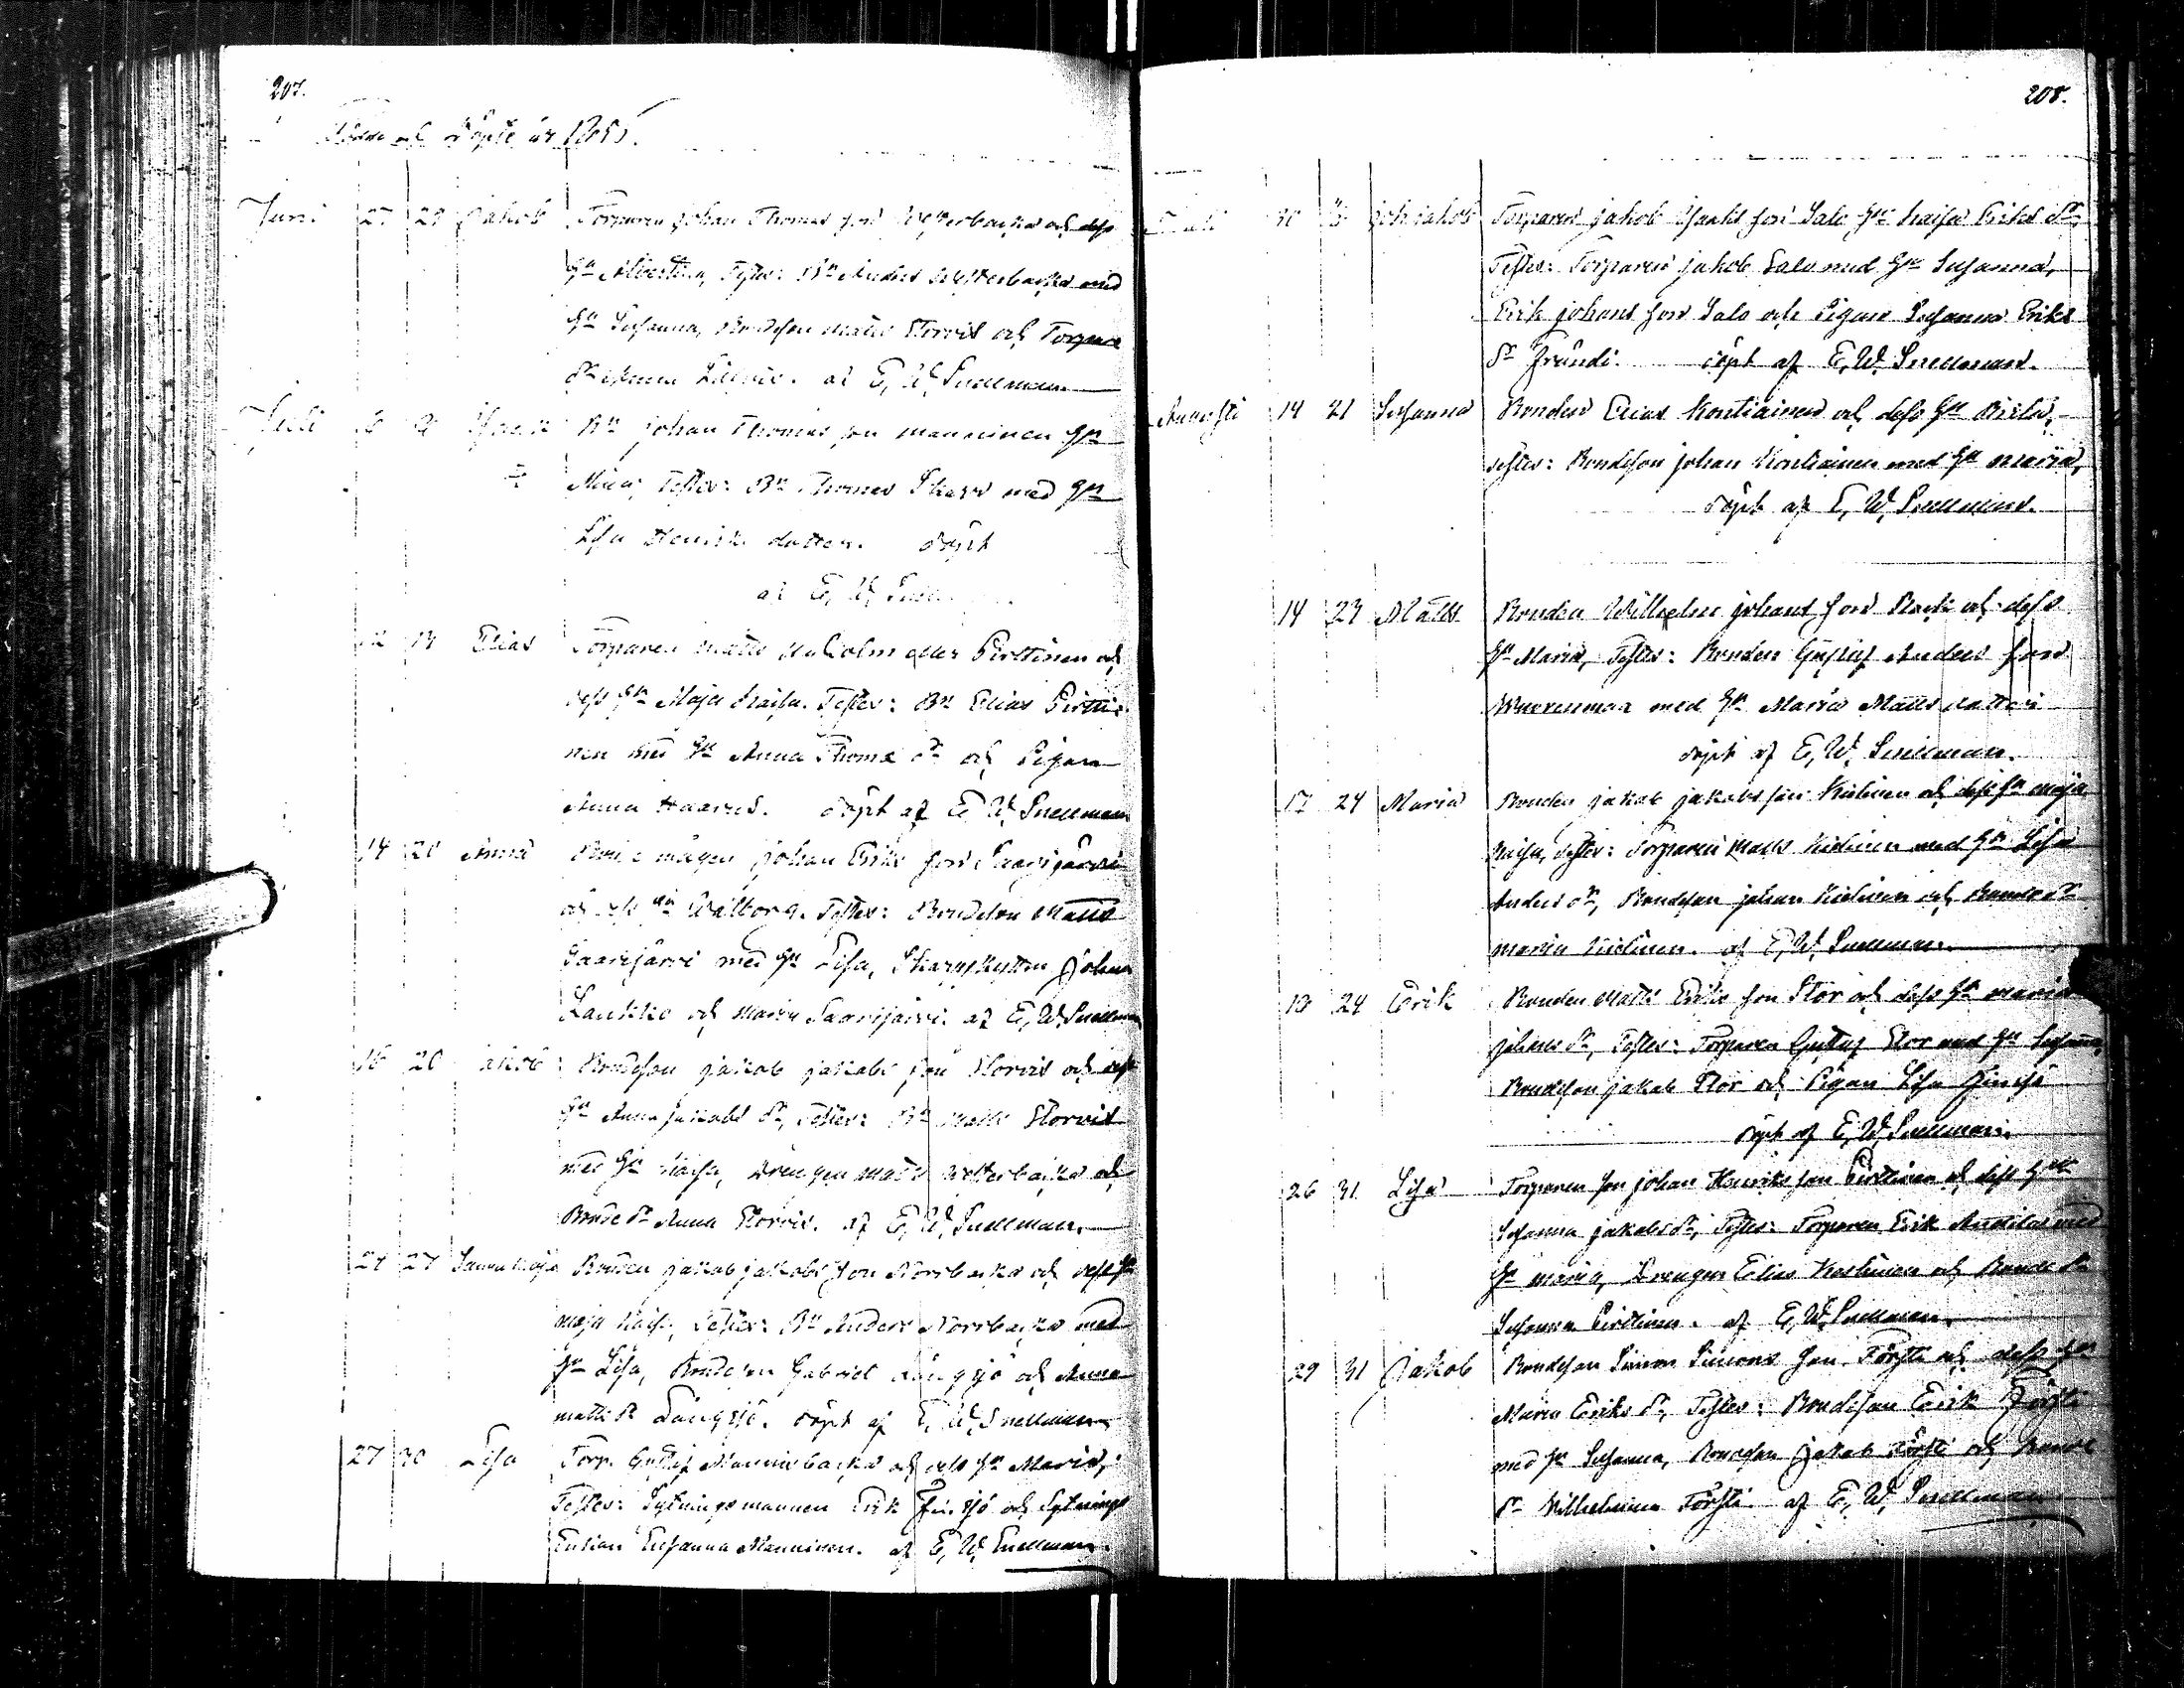 207.
Födde och Döpte år
Juni 27 29 Jakob Torparen Johan Thomas son Westerbacka och dess
Hu Albertina, Testes: Bn Anders Westerbacka med
Hu Susanna, Bondeson Matts Storvis och Torpare
dr Anna af E, W, Snellman
Juli Bn Johan Thomas son Manninen Hu
Testes: Bn Thomas med Hu
Lisa Henriks dotter. döpt
af E, W, Snell
12 14 Elias Torparen Matts Malholm eller Pirttinen och
dess Hu Maja Kaisa. Testes: Bn Elias Pirtti-
nen med Hu Anna Thomæ dr och Pigan
Anna döpt af E, W, Snellman
14 20 Anna mågen Johan Eriks son Saarijärvi
och dess Hu Walborg. Testes: Bondeson Matts
Saarijärvi med Hu Lisa, Skarpskytten Johan
Laukko och Maria Saarijärvi. af E, W, Snellman
16 20 Jakob Bondeson Jakob Jakobs son Storvis och dess
Hu Anna Jakobs dr, Testes: Bn Matts Storvis
med Hu Kaisa, Drengen Matts Westerbacka och
Bonde dr Anna Storvis. af E, W, Snellman.
24 27 Sanna Maja Bonden Jakob Jakobs son Norrbacka och dess Hu
Maja Kaisa, Testes: Bn Anders Norrbacka med
Hu Lisa, Bondeson Gabriel Långsjö och Anna
Matts dr Långsjö. döpt af E, W, Snellman
27 30 Lisa Torp. Gustaf Mannisbacka och dess Hu Maria,
Testes: Sytningsmannen Erik och Sytnings
Enkan Susanna Manninen. af E, W, Snellman.
208.
Juli 30 Joh: Jakob Torparen Jakob Isaaks son Salo Hu Kaisa Eriks dr,
Testes: Torparen Jakob Salo med Hu Susanna,
Erik Johans son Salo och Pigan Susanna Eriks
dr döpt af E, W, Snellman.
Augusti 14 21 Susanna Bonden Elias Kontiainen och dess Hu Brita,
Testes: Bondeson Johan Kontiainen med Hu Maria,
döpt af E, W, Snellman.
14 23 Matts Bonden Wilhelm Johans son och dess
Hu Maria, Testes: Bonden Gustaf Anders son
Wuorenmaa med Hu Maria Matts dotter
döpt af E, W, Snellman.
17 24 Maria Bonden Jakob Jakobs son Kielinen och dess Hu Maja
Kaisa, Testes: Torparen Matts Kielinen med Hu Lisa
Anders dr, Bondeson Johan Kielinen och Bonde dr
Maria Kielinen. af E, W, Snellman.
18 24 Erik Bonden Matts Eriks son Stor och dess Hu Maria
Johans dr, Testes: Torparen Gustaf Stor med Hu Susanna,
Bondeson Jakob Stor och Pigan Lisa
döpt af E, W, Snellman.
26 31 Lisa Torparen son Johan Henriks son Pirttinen och dess Hu
Susanna Jakobs dr, Testes: Torparen Erik med
Hu Maria, Drengen Elias och Bonde dr
Susanna Pirttinen. af E, W, Snellman.
29 31 Jakob Bondeson Simon Simons son Försti och dess Hu
Maria Eriks dr, Testes: Bondeson Erik Försti
med Hu Susanna, Bondeson Jakob Försti och Bonde
dr Wilhelmina Försti. af E, W, Snellman